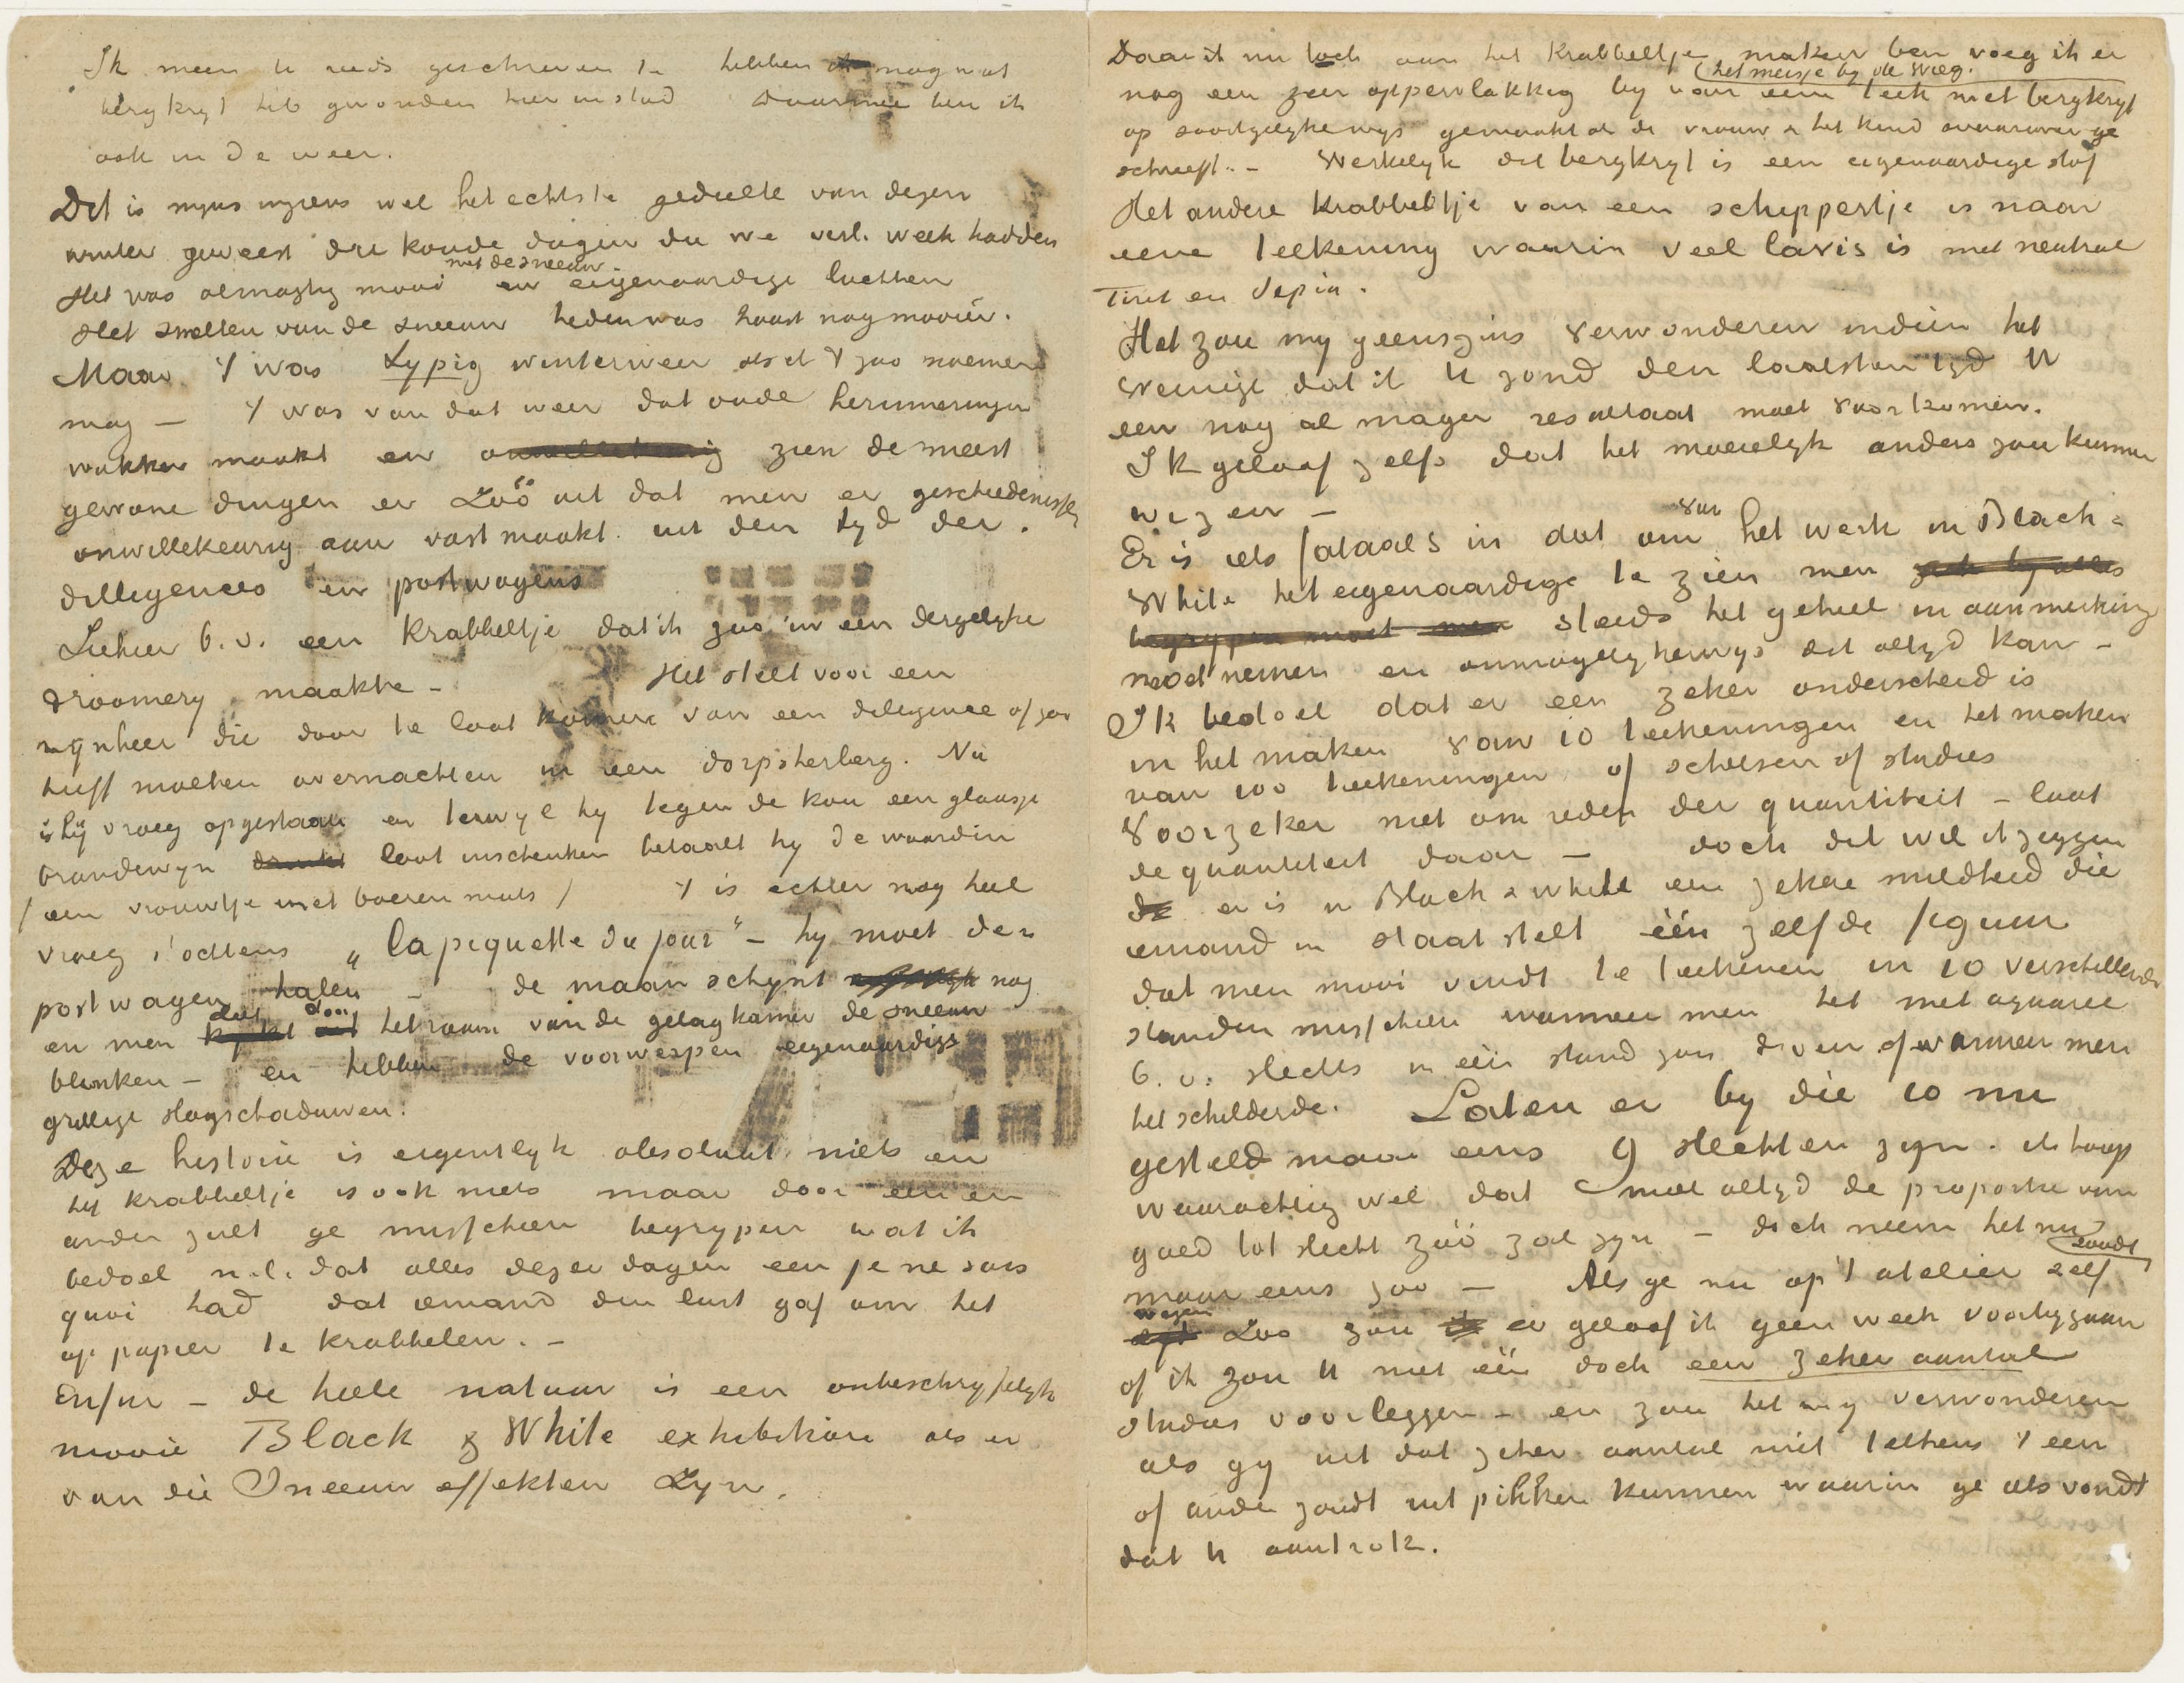 Ik meen U reeds geschreven te hebben ik nog wat
bergkrijt heb gevonden hier in stad daarmee ben ik
ook in de weer.
Dit is mijns inziens wel het echtste gedeelte van dezen
winter geweest die koude dagen die we verl. week hadden
Het was almagtig mooi met de sneeuw en eigenaardige luchten
Het smelten van de sneeuw heden was haast nog mooier.
Maar 't was typig winterweer als ik 't zoo noemen
mag — 't was van dat weer dat oude herinneringen
wakker maakt en onwillekeurig zien de meest
gewone dingen er zóó uit dat men er geschiedenissen
onwillekeurig aan vast maakt uit den tijd der
diligences en postwagens
Ziehier b.v. een krabbeltje dat ik zoo in een dergelijke
droomerij maakte — Het stelt voor een
mijnheer die door te laat komen van een diligence of zoo
heeft moeten overnachten in een dorpsherberg. Nu
is hij vroeg opgestaan en terwijl hij tegen de kou een glaasje
brandewijn drinkt laat inschenken betaalt hij de waardin
/ een vrouwtje met boeren muts / 't is echter nog heel
vroeg s'ochtens „la piquette du jour" — hij moet den
postwagen halen — de maan schijnt nog
en men ziet door het raam van de gelagkamer de sneeuw
blinken — en hebben de voorwerpen eigenaardige
grillige slagschaduwen.
Deze historie is eigentlijk absoluut niets en
het krabbeltje is ook niets maar door een en
ander zult ge misschien begrijpen wat ik
bedoel n.l. dat alles dezer dagen een je ne sais
quoi had dat iemand den lust gaf om het
op papier te krabbelen. —
Enfin — de heele natuur is een onbeschrijfelijk
mooie Black & White exhibition als er
van die Sneeuw effekten zijn.
Daar ik nu toch aan het krabbeltjes maken ben voeg ik er
nog een zeer oppervlakkig bij van een (het meisje bij de wieg) teek met bergkrijt
op soortgelijke wijs gemaakt als de vrouw & het kind waarover ge
schreeft. — Werkelijk dit bergkrijt is een eigenaardige stof
Het andere krabbeltje van een schippertje is naar
eene teekening waarin veel lavis is met neutral
Tint en Sepia.
Het zou mij geenszins verwonderen indien het
weinige dat ik U zond den laatsten tijd U
een nog al mager resultaat moet voorkomen.
Ik geloof zelfs dat het moeielijk anders zou kunnen
wezen —
Er is iets fataals in dat om van het werk in Black &
White het eigenaardige te zien men zich bij alles
begrijpen moet men steeds het geheel in aanmerking
moet nemen en onmogelijkerwijs dit altijd kan —
Ik bedoel dat er een zeker onderscheid is
in het maken van 10 teekeningen en het maken
van 100 teekeningen of schetsen of studies
Voorzeker niet om reden der quantiteit — laat
de quantiteit daar — doch dit wil ik zeggen
er is in Black & White een zekere mildheid die
iemand in staat stelt één zelfde figuur
dat men mooi vindt te teekenen in 10 verschillende
standen misschien wanneer men het met aquarel
b.v. slechts in één stand zou doen of wanneer men
het schilderde. Laten er bij die 10 nu
gesteld maar eens 9 slechten zijn. ik hoop
waarachtig wel dat niet altijd de proportie van
goed tot slecht zóó zal zijn — doch neem het nu
maar eens zoo — Als ge nu op 't atelier zelf zoudt
wezen zoo zou er geloof ik geen week voorbijgaan
of ik zou U niet één doch een zeker aantal
studies voorleggen — en zou het mij verwonderen
als gij uit dat zeker aantal niet telkens 't een
of ander zoudt uitpikken kunnen waarin ge iets vondt
dat U aantrok.